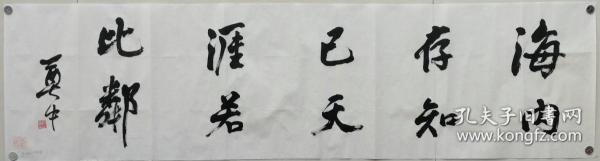 海内
存知
已天
涯若
比鄰
孔夫子旧书网
www.kongfz.com